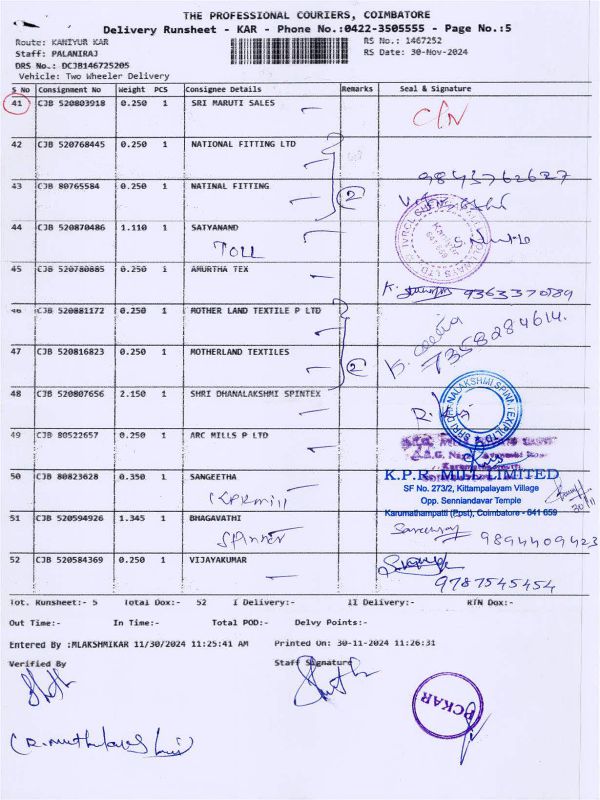 THE PROFESSIONAL COURIERS, COIMBATORE
Delivery Runsheet - KAR - Phone No.:0422-3505555 - Page No.:5
Route: KANIYUR KAR RS No.: 1467252
Staff: PALANIRAJ RS Date: 30-Nov-2024
DRS No.: DCJB146725205
Vehicle: Two Wheeler Delivery
S No Consignment No Weight PCS Consignee Details Remarks Seal & Signature
41 CJB 520803918 0.250 1 SRI MARUTI SALES C/N
42 CJB 520768445 0.250 1 NATIONAL FITTING LTD
9843762627
43 CJB 80765584 0.250 1 NATINAL FITTING 2
44 CJB 520870486 1.110 1 SATYANAND
TOLL
45 CJB 520780885 0.250 1 AMURTHA TEX
K. 9363370589
46 CJB 520881172 0.250 1 MOTHER LAND TEXTILE P LTD
7358284614.
47 CJB 520816823 0.250 1 MOTHERLAND TEXTILES 2
48 CJB 520807656 2.150 1 SHRI DHANALAKSHMI SPINTEX
49 CJB 80522657 0.250 1 ARC MILLS P LTD
50 CJB 80823628 0.350 1 SANGEETHA
KPR mill
K.P.R. MILL LIMITED
SF No. 273/2, Kittampalayam Village
Opp. Senniandavar Temple
Karumathampatti (Post), Coimbatore - 641 659
30/11
51 CJB 520594926 1.345 1 BHAGAVATHI
Spinner
9894409423
52 CJB 520584369 0.250 1 VIJAYAKUMAR
9787545454
Tot. Runsheet:- 5 Total Dox:- 52 I Delivery:- II Delivery:- RTN Dox:-
Out Time:- In Time:- Total POD:- Delvy Points:-
Entered By :MLAKSHMIKAR 11/30/2024 11:25:41 AM Printed On: 30-11-2024 11:26:31
Verified By Staff Signature
PCKAR